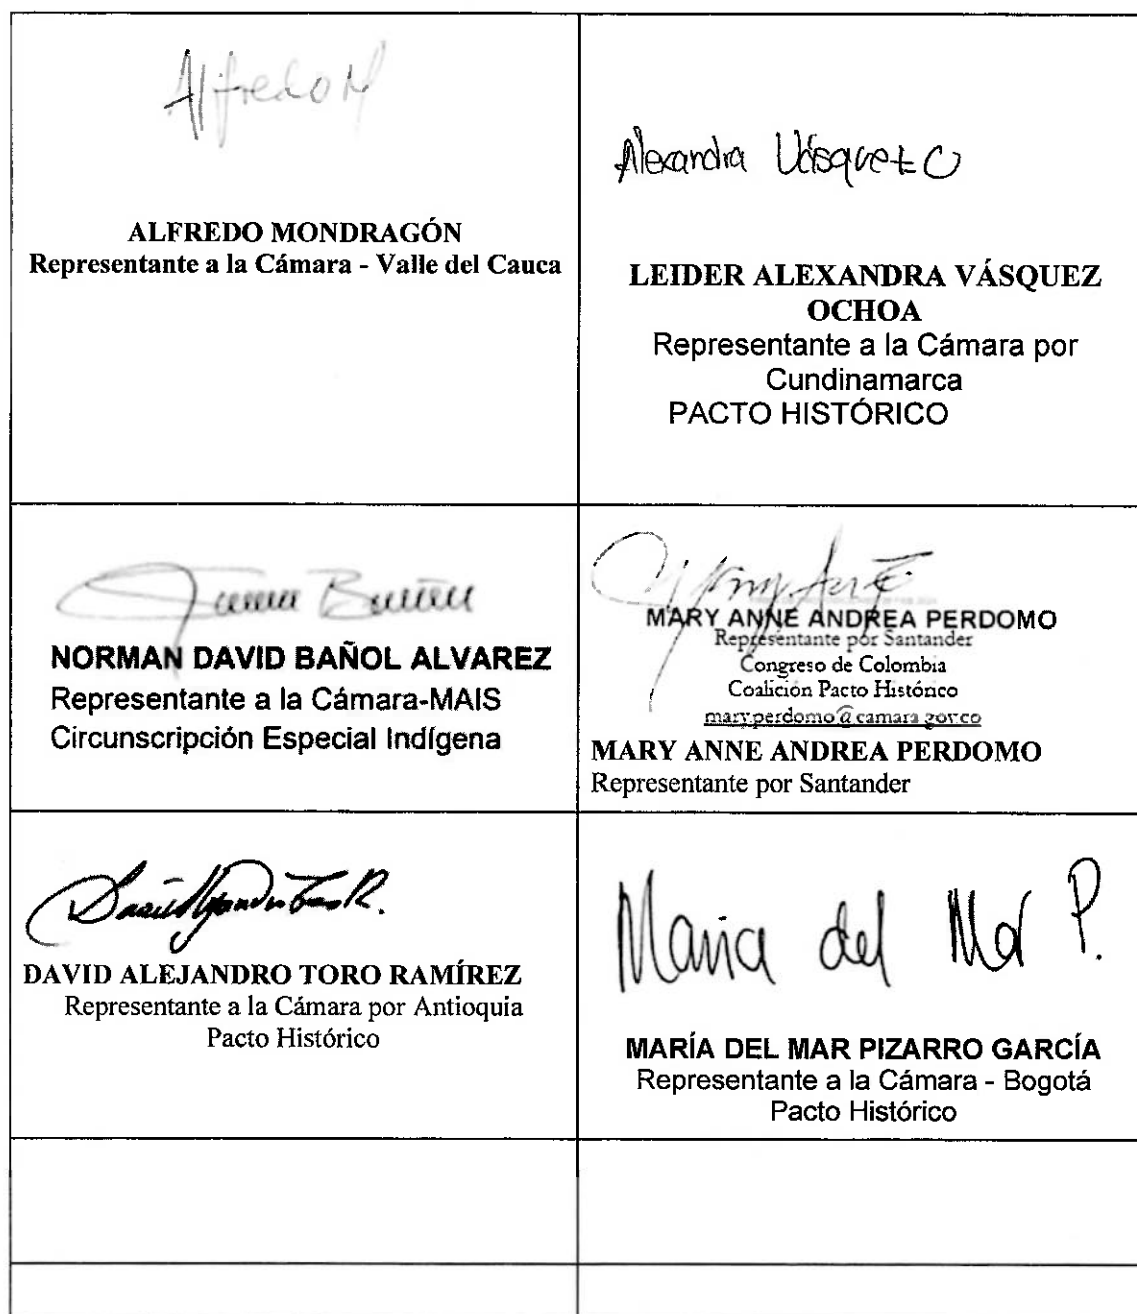 Alfredo M
ALFREDO MONDRAGÓN
Representante a la Cámara - Valle del Cauca
Alexandra Vásquez O
LEIDER ALEXANDRA VÁSQUEZ
OCHOA
Representante a la Cámara por
Cundinamarca
PACTO HISTÓRICO
NORMAN DAVID BAÑOL ALVAREZ
Representante a la Cámara-MAIS
Circunscripción Especial Indígena
MARY ANNE ANDREA PERDOMO
Representante por Santander
Congreso de Colombia
Coalición Pacto Histórico
mary.perdomo@camara.gov.co
MARY ANNE ANDREA PERDOMO
Representante por Santander
DAVID ALEJANDRO TORO RAMÍREZ
Representante a la Cámara por Antioquia
Pacto Histórico
Maria del Mar P.
MARÍA DEL MAR PIZARRO GARCÍA
Representante a la Cámara - Bogotá
Pacto Histórico